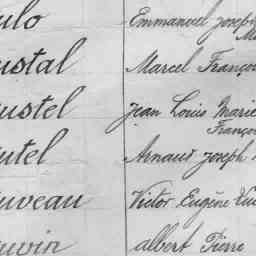 ulo Emmanuel joseph
ustal Marcel Franço
ustel Jean Louis Marie
Franço
utel Arnaud joseph
uveau Victor Eugène
uvin albert Pierre